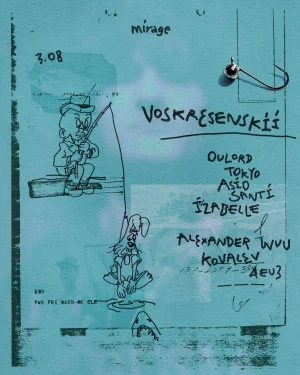 mirage
3.08
VOSKRESENSKIÍ
OULORD
TOKYO
ASIO
SANTÍ
ÏZABELLE
ALEXANDER
KOVALEV